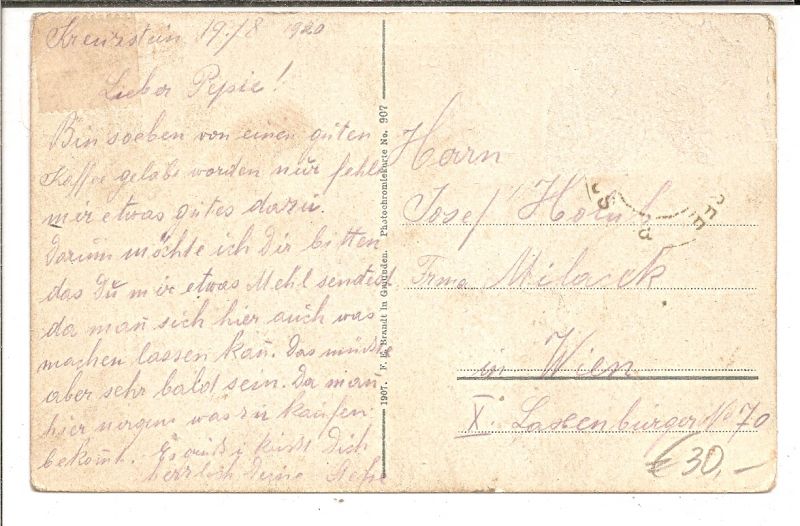 Kreuzstein 19./8 1920
Lieber Pepsie!
Bin soeben von einen guten
Kaffee gelabt worden nur fehlt
mir etwas gutes dazu.
Darum möchte ich Dir bitten
das Du mir etwas Mehl sendest
da man sich hier auch was
machen lassen kan̄. Das müßte
aber sehr bald sein. Da man
hier nirgens was zu kaufen
bekomt. Es grüßt u küßt Dich
herzlich Deine
1907. F. E. Brandt in Gmunden. Photochromiekarte No. 907
Herrn
Josef
Firma
in Wien
X. Laxenburger No 70
€30,-